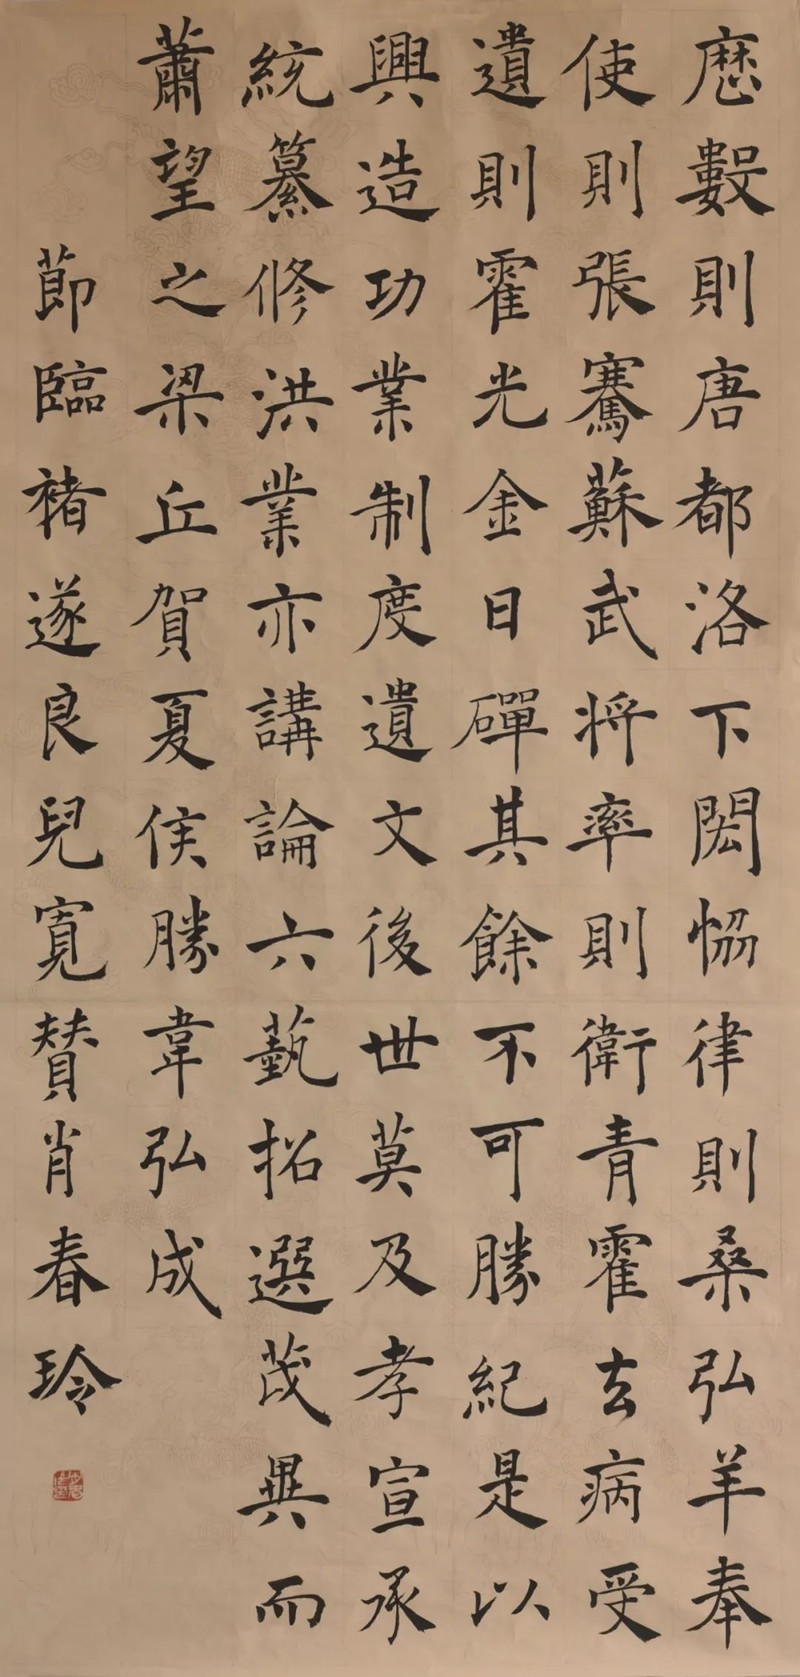 歷數則唐都洛下閎恊律則桑弘羊奉
使則張騫蘇武將率則衛青霍去病受
遺則霍光金日磾其餘不可勝紀是以
興造功業制度遺文後世莫及孝宣承
統纂修洪業亦講論六藝招選茂異而
蕭望之梁丘賀夏侯勝韋弘成
節臨褚遂良兒寬贊肖春玲